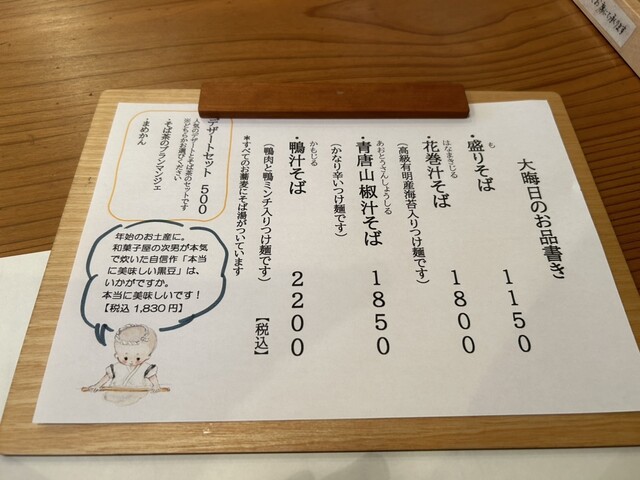 大晦日のお品書き
・盛りそば 1150
も
・花巻汁そば 1800
はなまきじる
（高級有明産海苔入りつけ麺です）
・青唐山椒汁そば 1850
あおとうさんしょうじる
（かなり辛いつけ麺です）
・鴨汁そば 2200
かもじる
（鴨肉と鴨ミンチ入りつけ麺です）
【税込】
＊すべてのお蕎麦にそば湯がついています
デザートセット 500
人気のデザートとそば茶のセットです
※どちらかお選びください
・そば茶のブランマンジェ
・まめかん
年始のお土産に。
和菓子屋の次男が本気
で炊いた自信作「本当
に美味しい黒豆」は、
いかがですか。
本当に美味しいです！
【税込 1,830円】